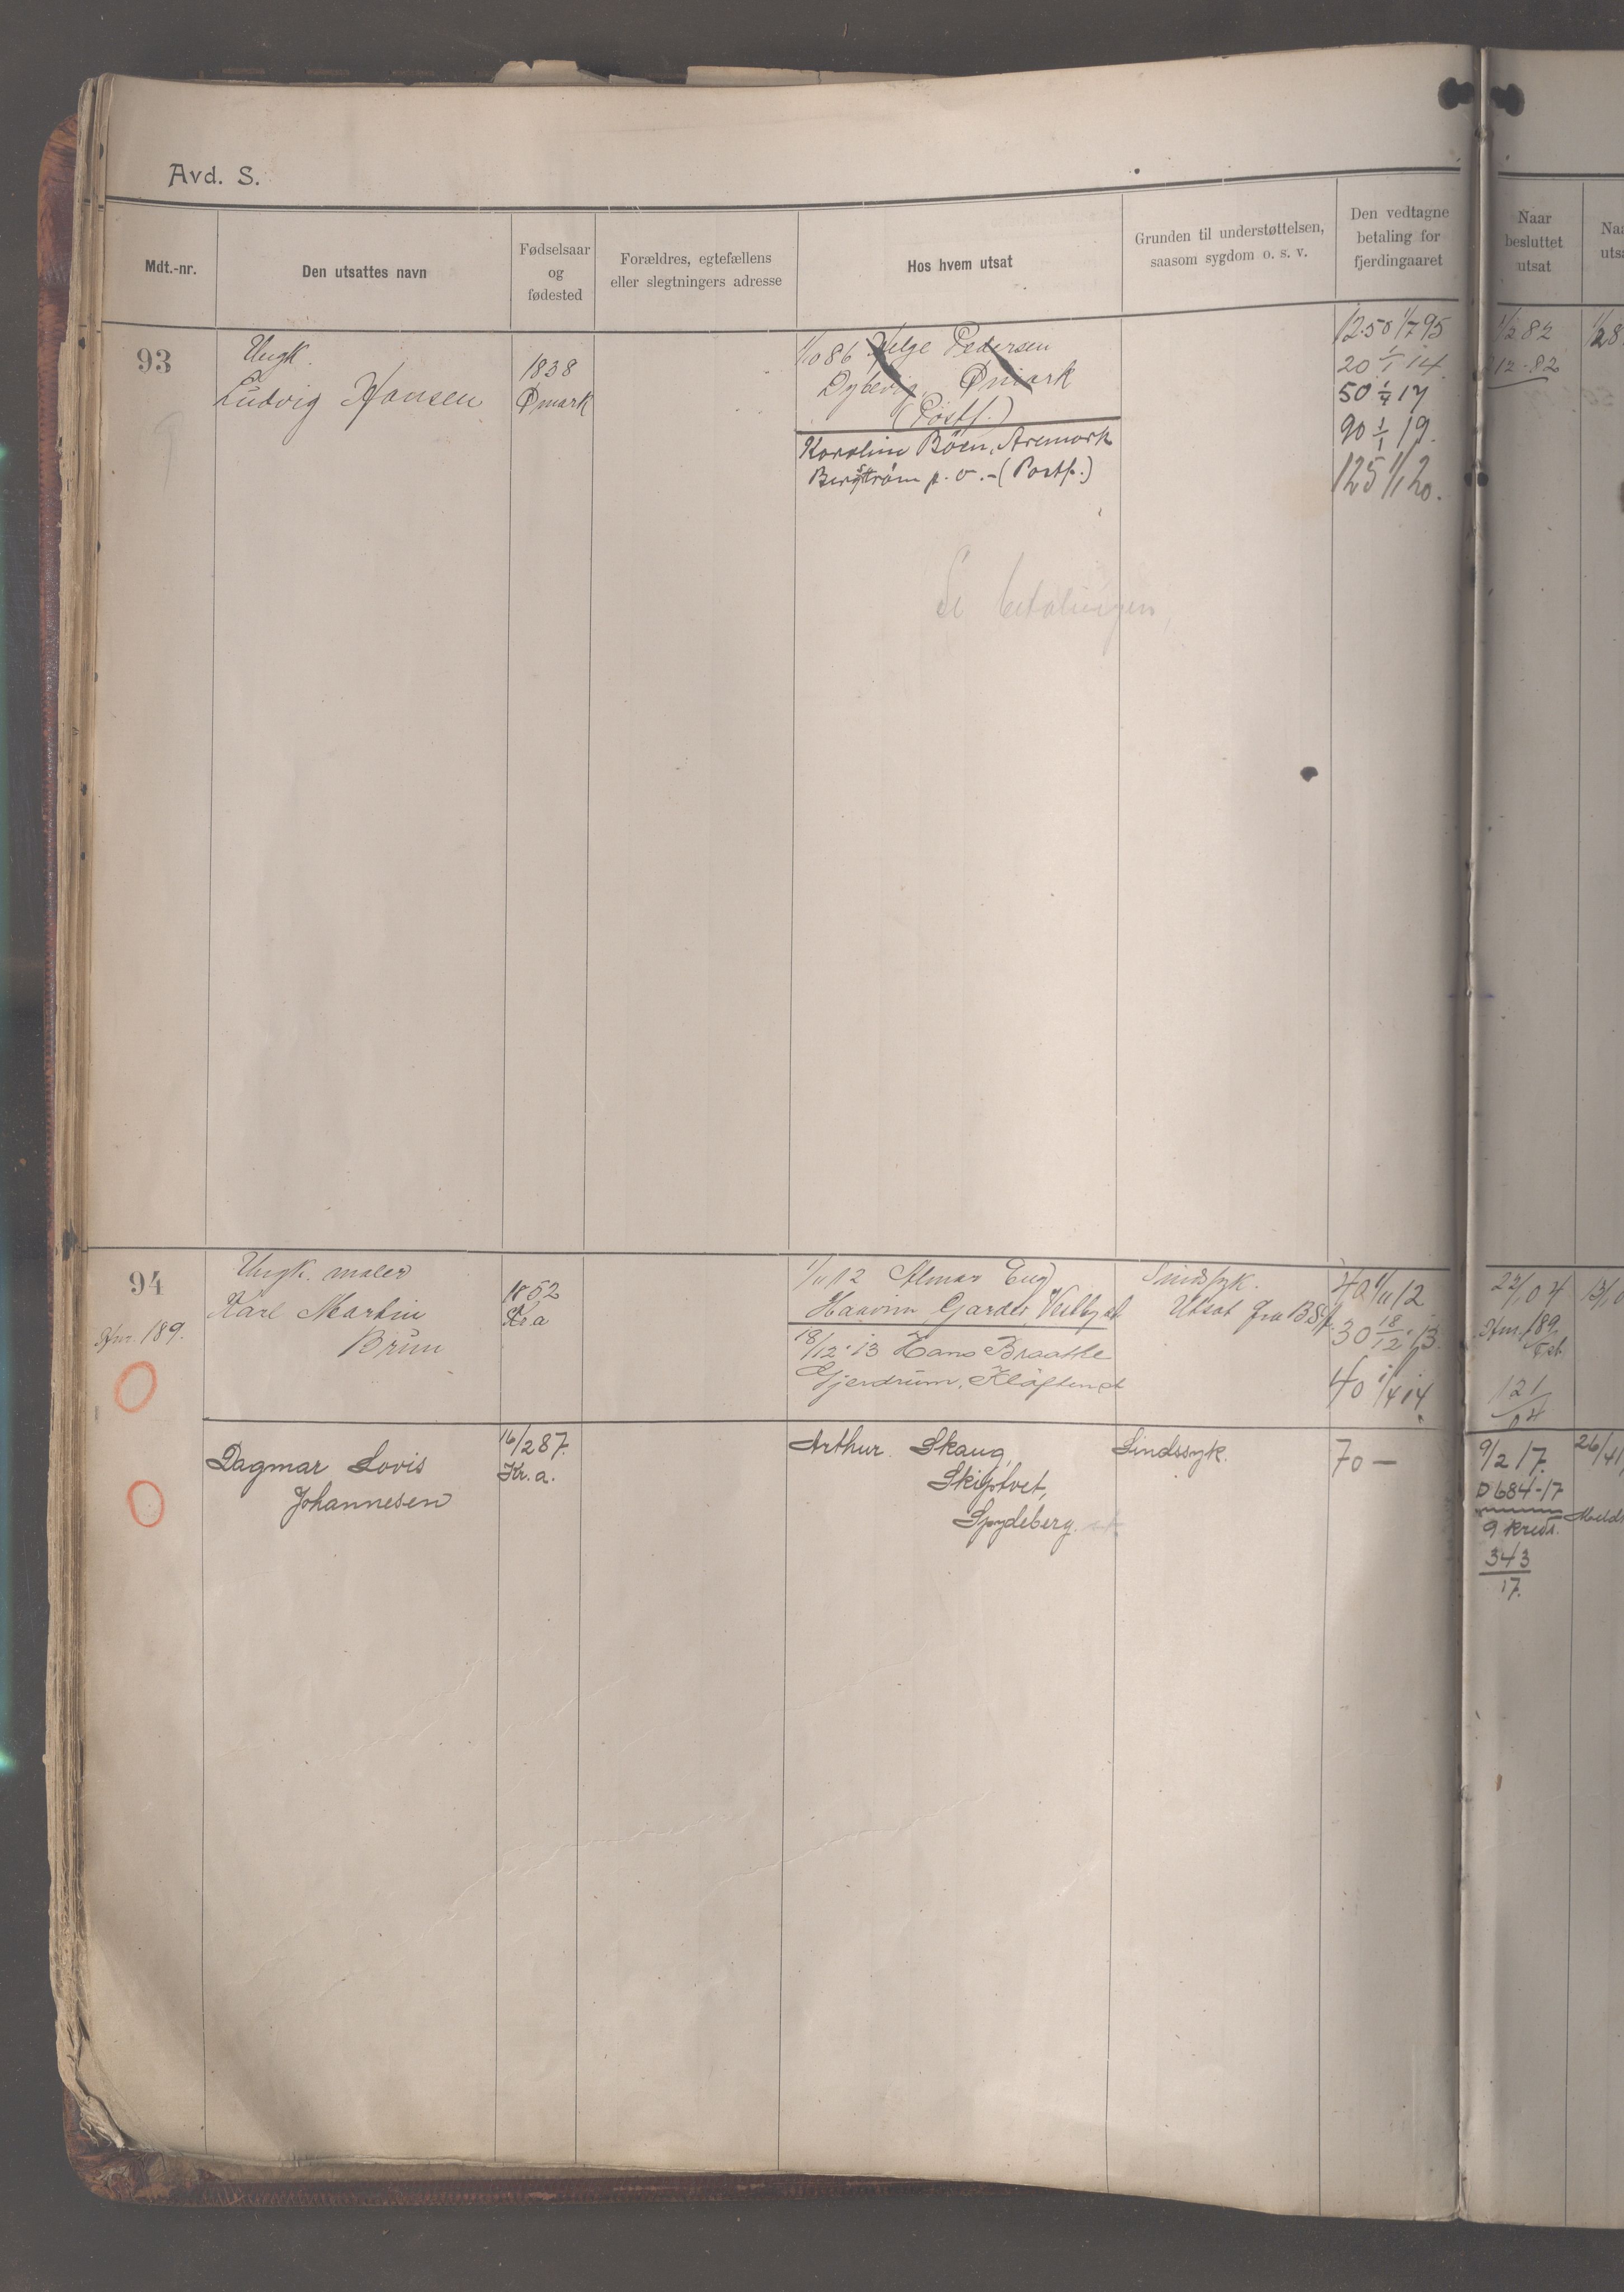 Avd. S.
Mdt.-nr.
Den utsattes navn
Fødselsaar
og
fødested
Forældres, egtefællens
eller slegtningers adresse
Hos hvem utsat
Grunden til understøttelsen,
saasom sygdom o. s. v.
Den vedtagne
betaling for
fjerdingaaret
Naar
besluttet
utsat
93
Ungk.
Ludvig Hansen
1838
Ømark
1/10 86 Helge Pedersen
Ømark
(Postf.)
Karoline Böen, Aremark
Bergström p. o. - (Postf.)
12.50 1/7 95
20 1/1 14.
50 1/4 17
90 1/1 19.
125 1/1 20.
1/2 82
212-82
Se betalingen,
94
Ungk. maler
Karl Martin
Brun
Hm. 189.
1852
Kr.a
1/11 12 Almar Eng
Haavin Garder, Vestby st
18/12 13 Hans Braathe
Gjerdrum, Kløften st
Sindssyk.
Utsat fra B.S.
40 1/11 12
30 18/12 13.
40 1/4 14
22/1 04
Hm. 189
121
04
Dagmar Lovis
Johannesen
16/2 87.
Kr.a.
Arthur Skaug,
Skiptvet,
Spydeberg. st
Sindssyk.
70 —
9/2 17.
D 684-17
9 Kreds.
343
17.